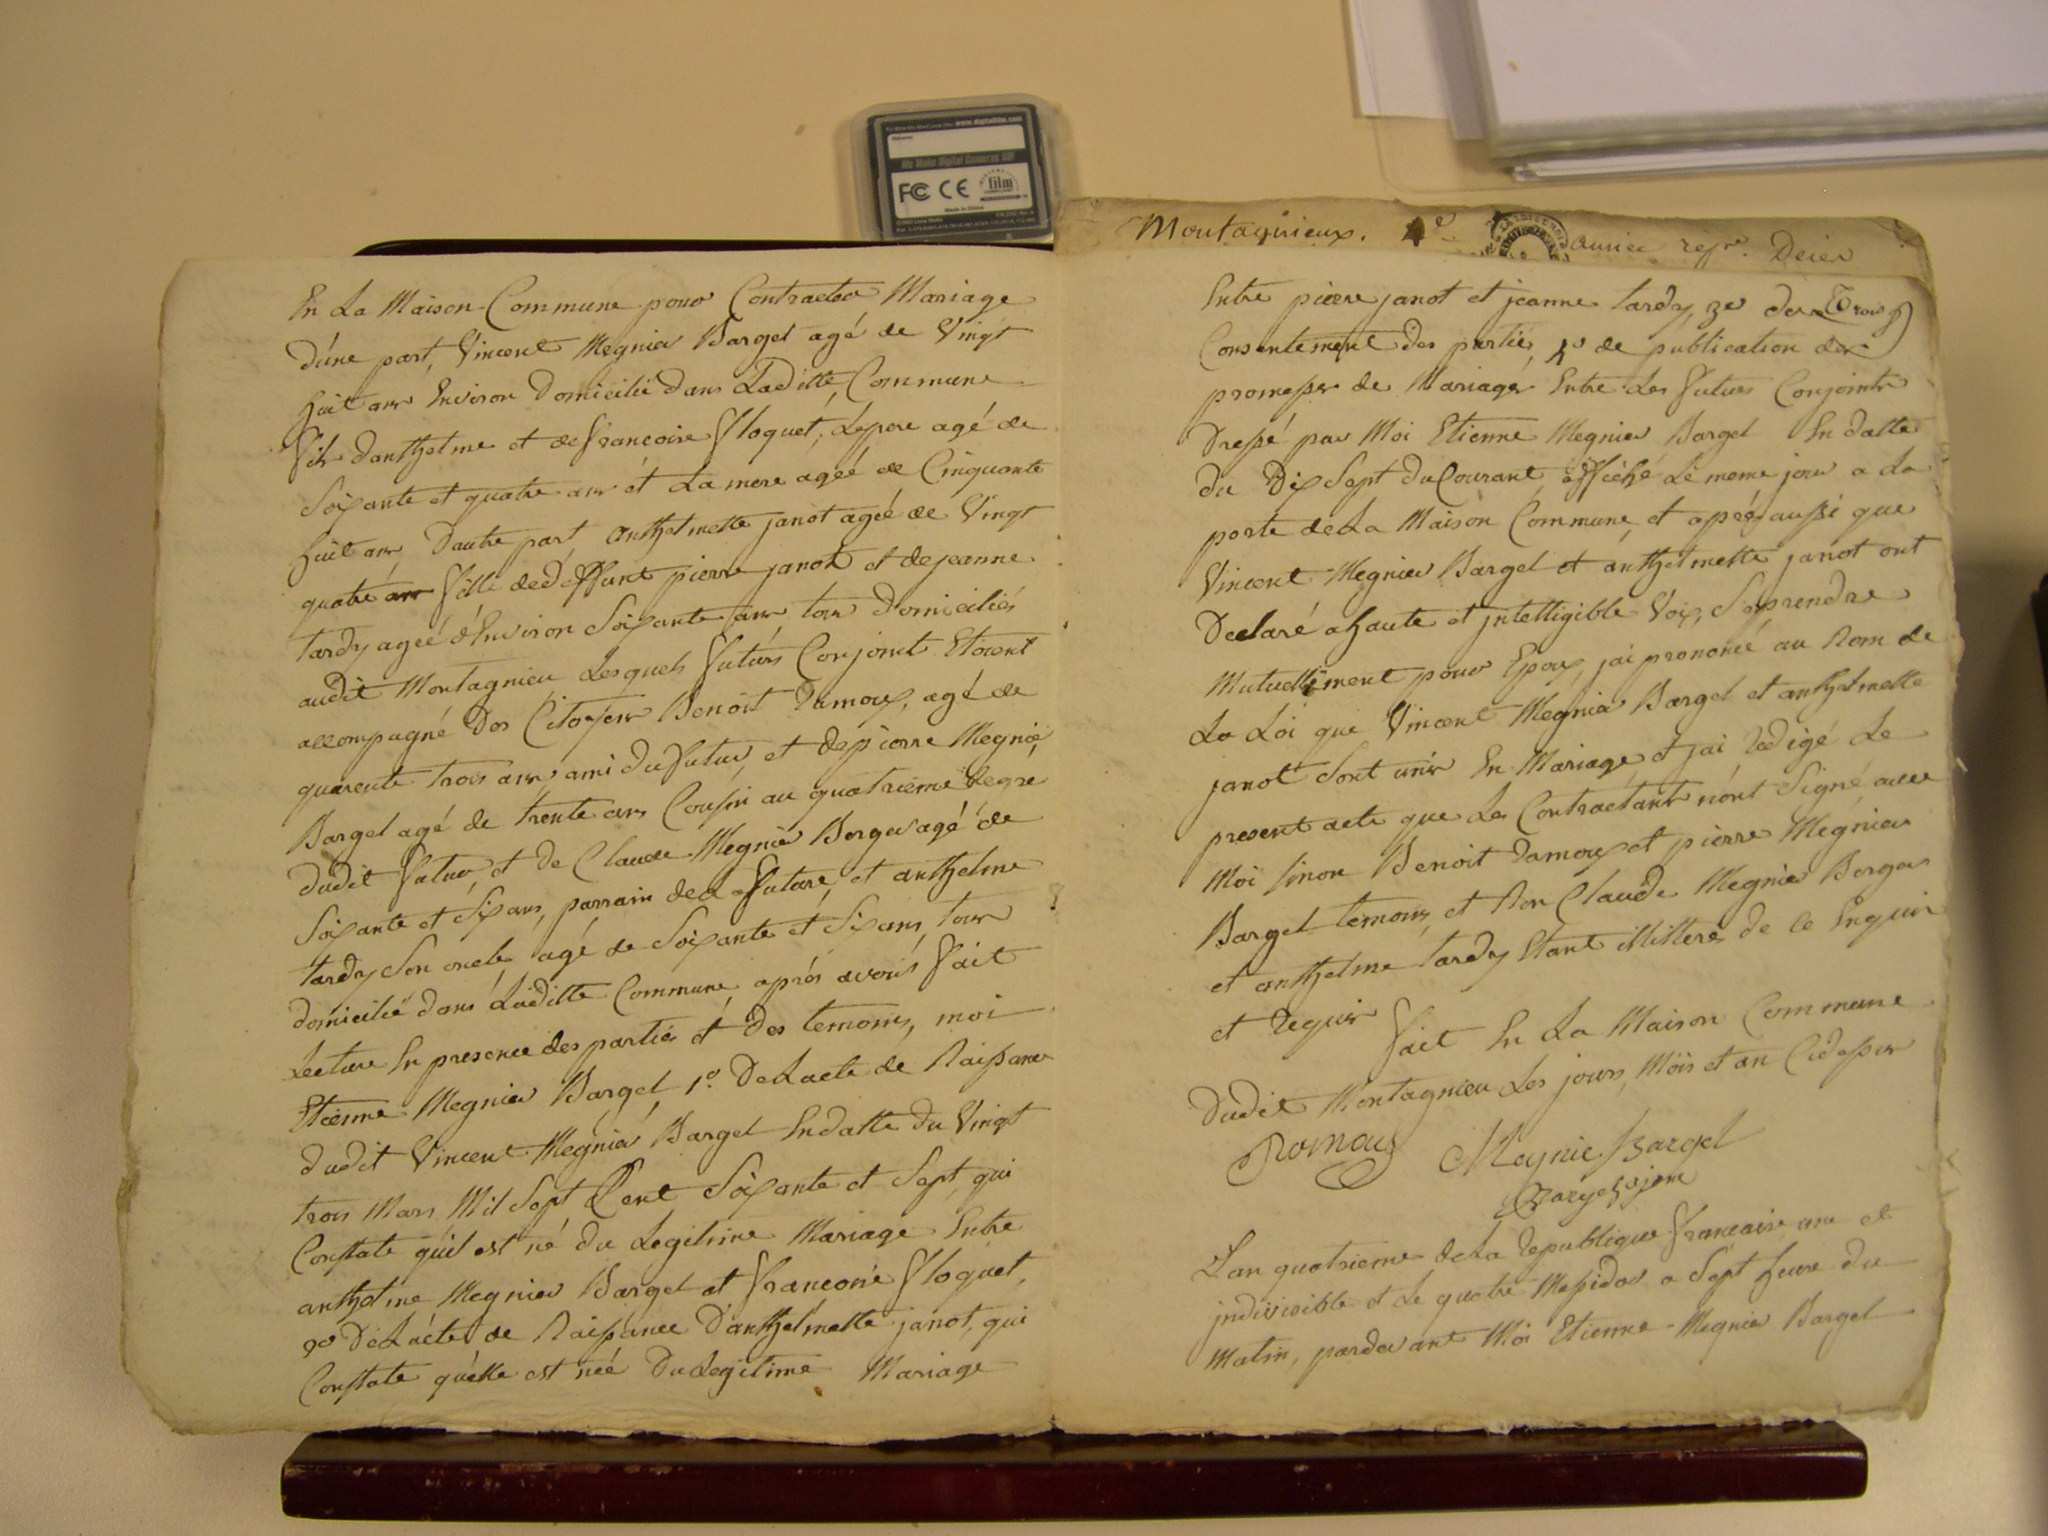 www.digitalfilm.com
We Make Digital Cameras GO!
FC CE film
Made in China
Montagnieux. 4e
En La Maison Commune pour Contracter Mariage
dúne part, Vincent Megnier Bargel agé de Vingt
huit ans Environ domicilié dans Laditte Commune
fils danthelme et de francoise floquet, Lepere agé de
Soixante et quatre ans et La mere ageé de Cinquante
huit ans, dautre part anthelmette janot ageé de Vingt
quatre ans fille dedeffunt pierre janot et dejeanne
tardy ageé d'Environ Soixante ans, tous domiciliés
audit Montagnieu Lesquels futurs Conjoint Etoient
accompagné Des Citoyens Benoit Damoux, agé de
quarente trois ans, ami du futur, et depierre Megnier
Bargel agé de trente ans Cousin au quatrieme degré
dudit futur, et de Claude Megnier Berger agé de
Soixante et Six ans, parrain dela future, et anthelme
tardy Son oncle agé de Soixante et Six ans, tous
domicilié dans Laditte Commune, aprés avoir fait
Lecture En presence des parties et des temoins, moi
Etienne Megnier Bargel, 1o. DeLacte de Naissance
dudit Vincent Megnier Bargel Endatte du Vingt
trois Mars Mil Sept Cent Soixante et Sept, qui
Constate quil est né du Legitime Mariage Entre
anthelme Megnier Bargel et francoise floquet,
2o DeLacte de Naissance Danthelmette janot, qui
Constate quélle est neé DuLegitime Mariage
Entre pierre janot et jeanne tardy, 3o du
Consentement des parties, 4o de publication des
promesses de Mariage Entre Les futurs Conjoints
Dressé par Moi Etienne Megnier Bargel En datte
du Dix Sept du Courant affiché Le meme jour a La
porte deLa Maison Commune, et aprés aussi que
Vincent Megnier Bargel et anthelmette janot ont
Declaré a haute et jntelligible Voix, Seprendre
Mutuellement pour Epoux, jai prononcé au Nom de
La Loi que Vincent Megnier Bargel et anthelmette
janot Sont unis En Mariage et jai Redigé Le
present acte que Les Contractants nónt Signé avec
Moi sinon Benoit Damoux et pierre Megnier
Bargel temoins, et Non Claude Megnier Berger
et anthelme tardy Etant illitteré de ce Enquis
et Requis fait En La Maison Commune
Dudit Montagnieu Les jours, Mois et an Cidessus
Megnie Bargel
L'an quatrieme deLa Republique francaise une et
jndivisible et Le quatre Messidor a Sept heure du
Matin, pardevant Moi Etienne Megnier Bargel